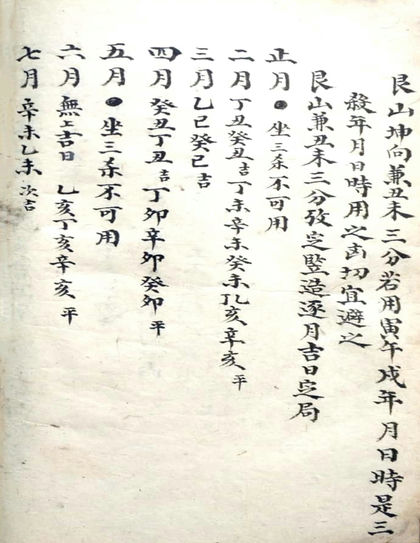 艮山坤向兼丑未三分若用寅午戌年月日時是三
殺年月日時用之凶切宜避之
艮山兼丑未三分攷定竪造逐月吉日定局
正月●坐三杀不可用
二月丁丑癸丑吉丁未辛未癸未乙亥辛亥平
三月乙巳癸巳吉
四月癸丑丁丑吉丁卯辛卯癸卯平
五月●坐三杀不可用
六月無上吉日 乙亥丁亥辛亥平
七月辛未乙未次吉